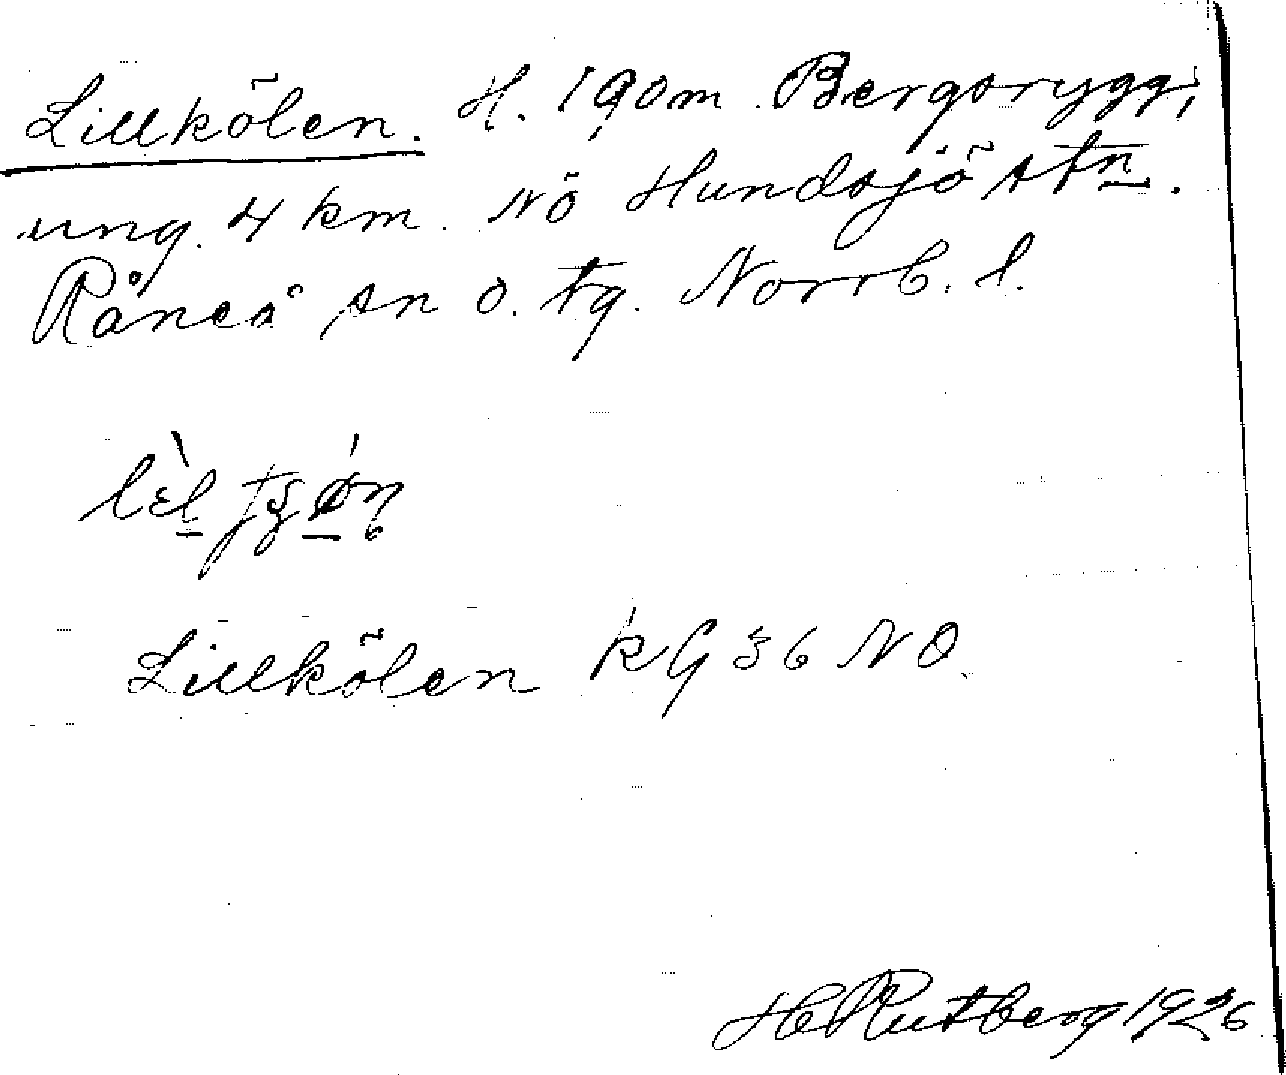 Lillkölen. H. 190 m Bergsrygg,
ung. 4 km. NÖ Hundsjö stn.
Råneå sn o. tg. Norrb. l.
Lillkölen KG 36 NO
H Rutberg 1926